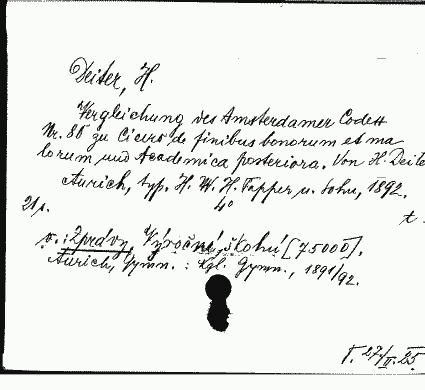 Deiter, H.
Vergleichung des Amsterdamer Codex
Nr. 80 zu Cicero de finibus bonorum et ma
lorum und Academica posteriora. Von H. Deite
Aurich, typ. H. W. H. Tapper u. Sohn, 1892.
4°
21 s.
t
v.: Zprávy, Výroční, školní [75000].
Aurich, Gymn.: Kgl. Gymn., 1891/92.
T. 27/II.25.